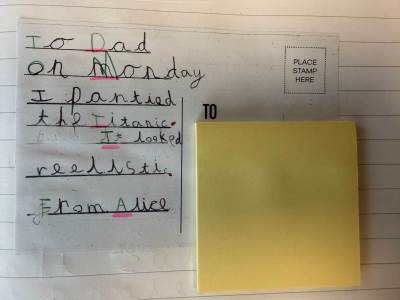 To Dad
on Monday
I pantied
the Titanic.
It looked
reelistic.
From Alice
PLACE
STAMP
HERE
TO